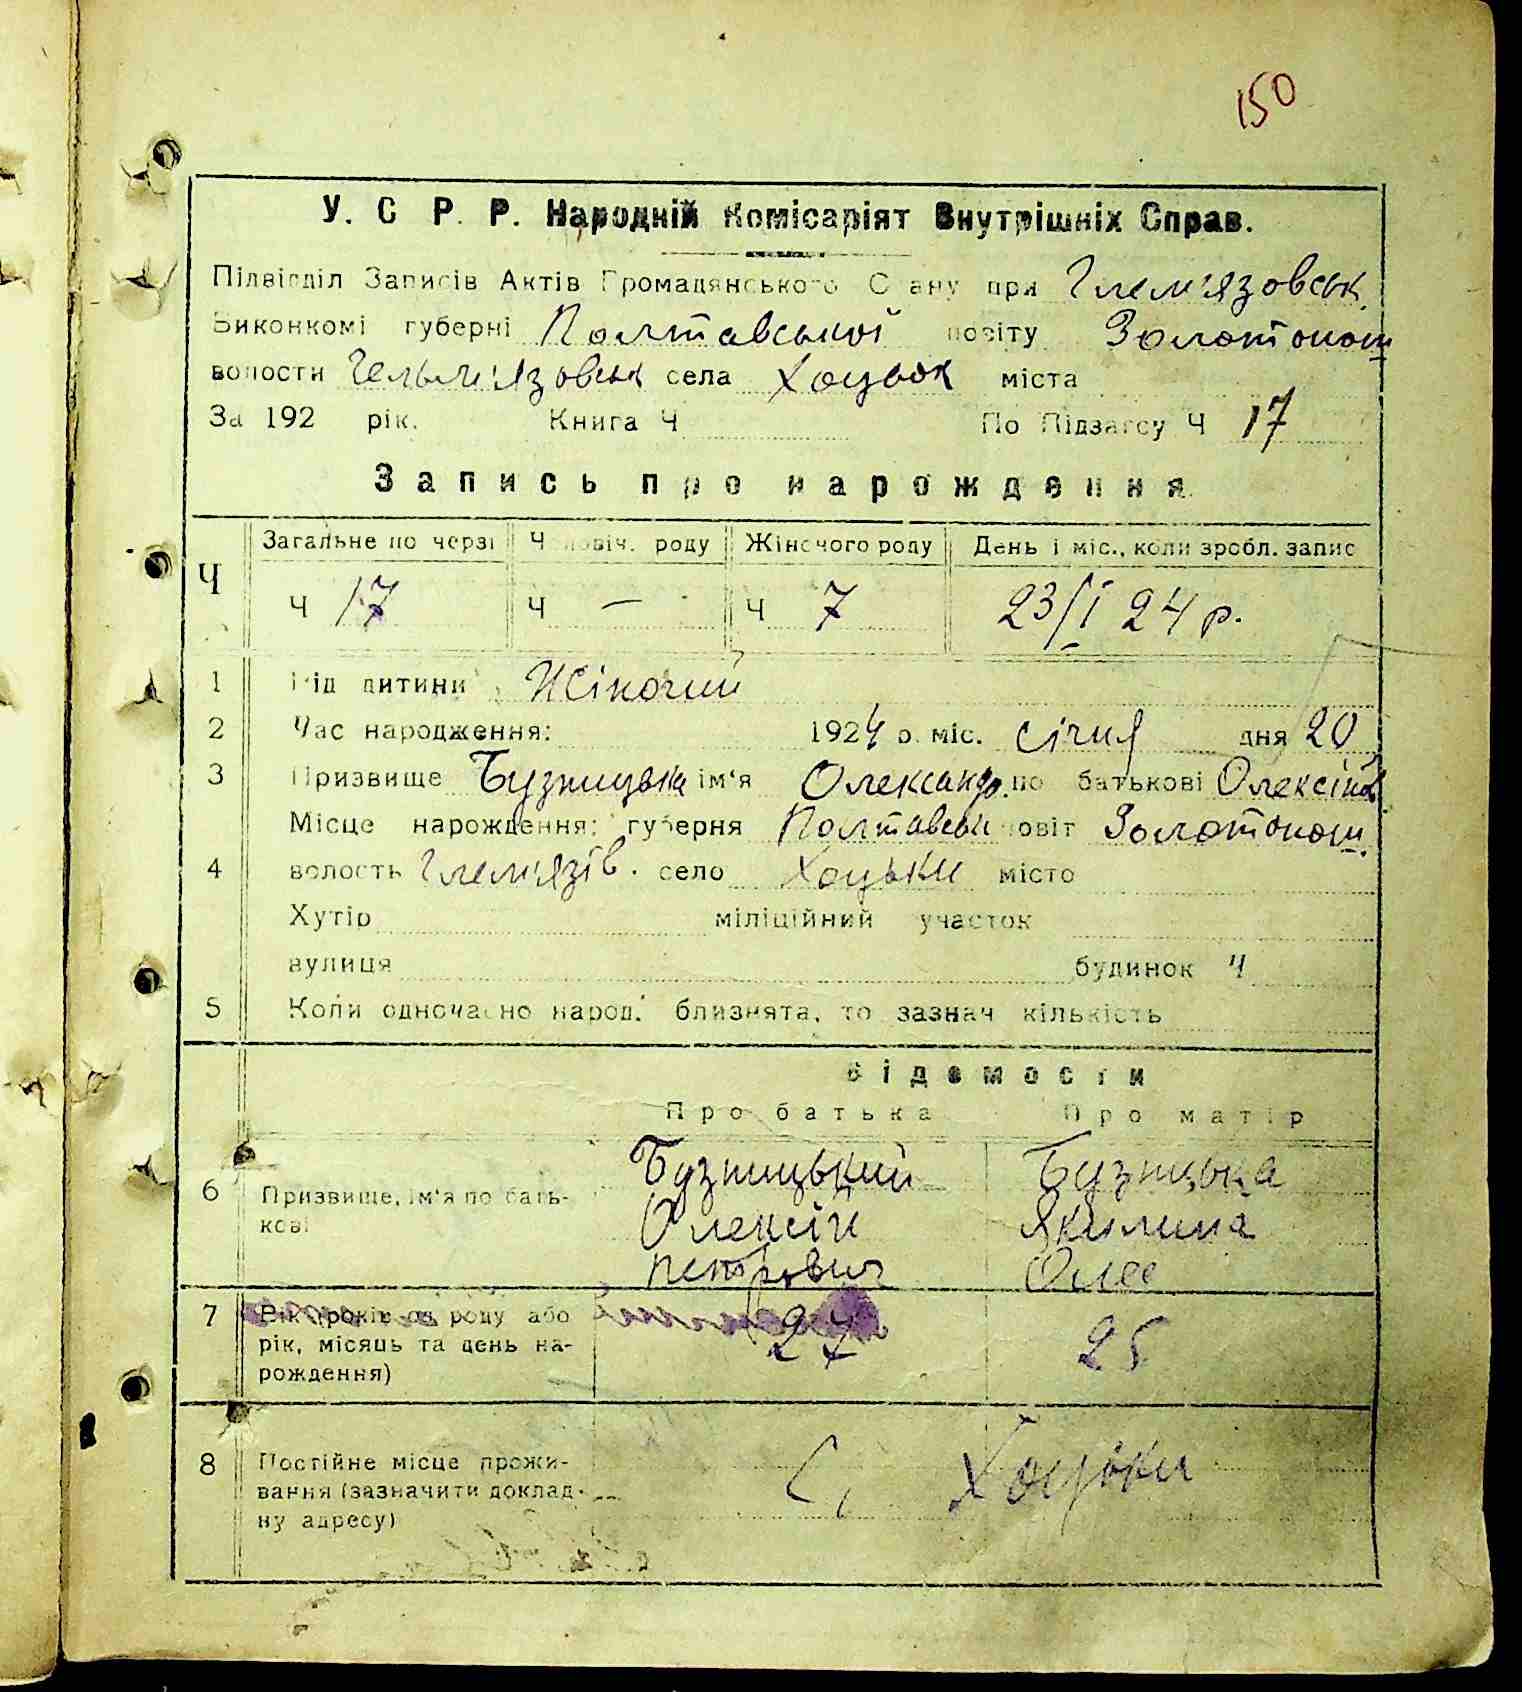 150
У. С Р. Р. Народній Комісаріят Внутрішніх Справ.
Підвідділ Записів Актів Громадянського Стану при Глем'язовськ.
Виконкомі губерні Полтавської повіту Золотонош
волости Гельм'язовськ села Хоцьок міста
За 192 рік. Книга Ч По Підзагсу Ч 17
Запись про нарождення
Ч Загальне по черзі Чоловіч. роду Жіночого роду День і міс., коли зробл. запис
Ч 17 Ч — Ч 7 23/I 24 р.
1 Рід дитини Жіночий
2 Час народження: 1924 р. міс. січня дня 20
3 Призвище Бузницька ім'я Олександр. по батькові Олексіїв
Місце нарождення: губерня Полтавськ повіт Золотонош.
4 волость Глем'язів. село Хоцьки місто
Хутір міліційний участок
вулиця будинок Ч
5 Коли одночасно народ. близнята, то зазнач кількість
Відомости
Про батька Про матір
6 Призвище, ім'я по бать-
кові
Бузницький Бузницька
Олексій Якилина
Петрович
7 Вік (років од роду або
рік, місяць та день на-
рождення)
27 25
8 Постійне місце прожи-
вання (зазначити доклад-
ну адресу)
С, Хоцьки